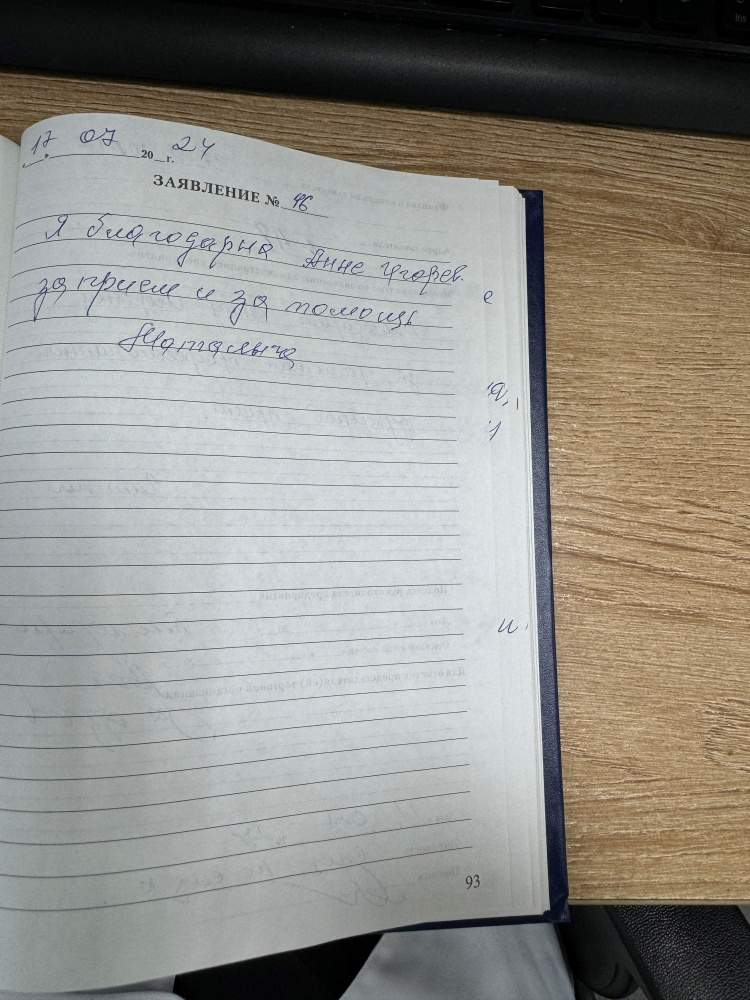 17 07 20__г. 24
ЗАЯВЛЕНИЕ № 46
Я благодарна Анне Игорев.
за прием и за помощь
Наталья
93